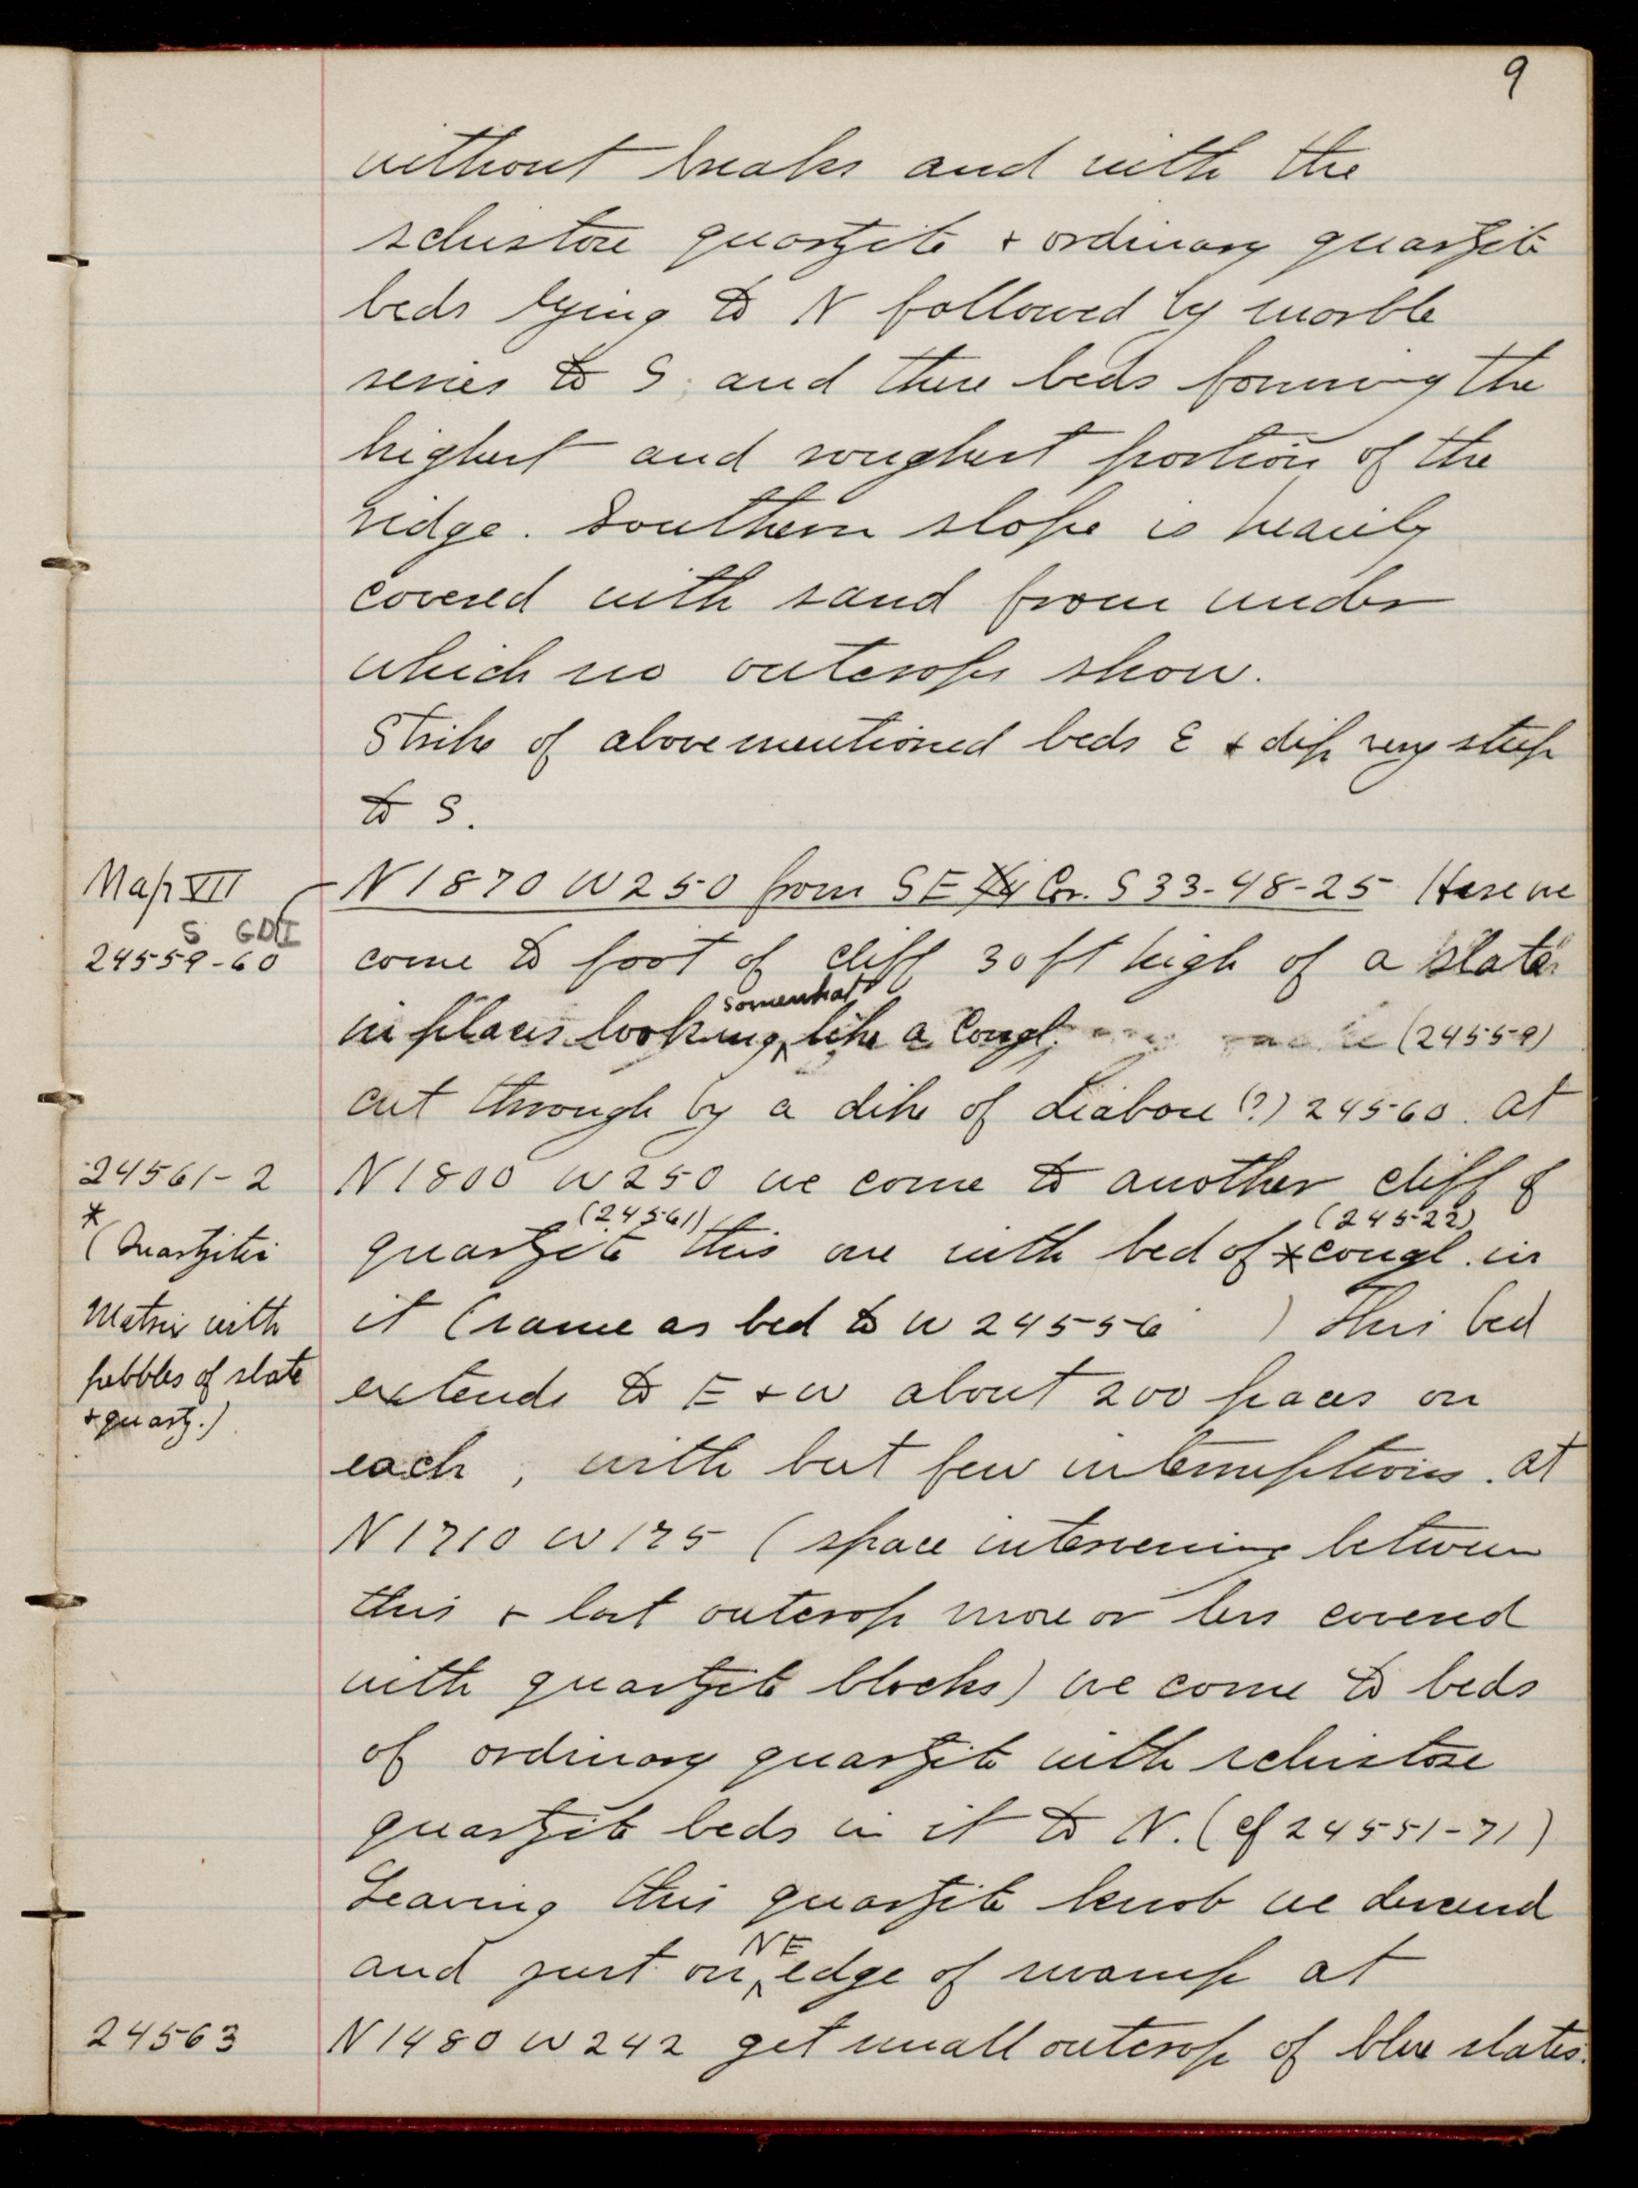 9
without breaks and with the
schistose quartzite + ordinary quartzite
beds lying to N followed by marble
series to S. and these beds forming the
highest and roughest portion of the
ridge. Southern slope is heavily
covered with sand from under
which no outcrops show.
Strike of above mentioned beds E + dip very steep
to S.
Map VII
N 1870 W 250 from SE 1/4 Cor. S 33-48-25 Here we
S GDII
24559-60
come to foot of cliff 30 ft high of a slate
somewhat
in places looking like a Congl. (24559)
cut through by a dike of diabase (?) 24560. at
24561-2
N 1800 W 250 we come to another cliff of
(24561) (24522)
* (Quartzitic
quartzite this one with bed of * congl. in
Matrix with
it (same as bed to W 24556 ) This bed
pebbles of slate
extends to E + W about 200 paces on
+ quartz.)
each , with but few interruptions. at
N 1710 W 175 (space intervening between
this + last outcrop more or less covered
with quartzite blocks) we come to beds
of ordinary quartzite with schistose
quartzite beds in it to N. (cf 24551-71)
Leaving this quartzite knob we descend
NE
and just on edge of swamp at
24563
N 1480 W 242 get small outcrop of blue slates.